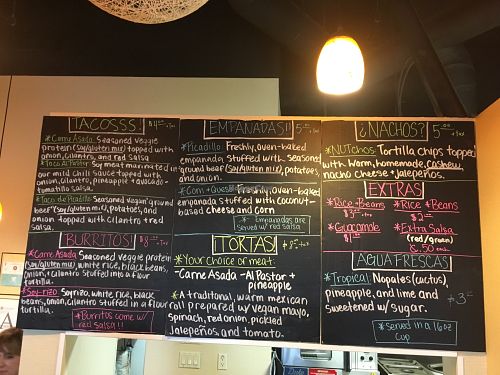 TACOSSS! $4.00+Tax
*Carne Asada: Seasoned veggie
protein (soy/gluten mix) topped with
onion, cilantro, and red salsa.
*Taco Al Pastor: Soy meat marinated in
our mild chili sauce topped with
onion, cilantro, pineapple + avocado-
tomatillo salsa.
*Taco de Picadillo: Seasoned vegan ground
beef (soy/gluten mix), potatoes, and
onion topped with cilantro + red
salsa.
BURRITOS! $8.00+tax
*Carne Asada: Seasoned veggie protein
(soy/gluten mix), white rice, black beans,
onion, + cilantro stuffed into a flour
tortilla.
*Soy-rizo: Soyrizo, white rice, black
beans, onion, cilantro stuffed in a flour
tortilla.
*Burritos come w/
red salsa!!
EMPANADAS!! 5.00 +tax
*Picadillo: Freshly, oven-baked
empanada stuffed with seasoned
ground beef (soy/gluten mix), potatoes,
and onion.
*Corn + Queso: Freshly, oven-baked
empanada stuffed with Coconut-
based cheese and corn
*Empanadas are
served w/ red salsa
¡TORTAS! $8.00+tax
*Your choice or meat:
-Carne Asada -Al Pastor +
pineapple
*A traditonal, warm mexican
roll prepared w/ vegan mayo,
spinach, red onion, pickled
Jalepeños, and tomato.
¿NACHOS? 5.00 +tax
*NUTchos: Tortilla chips topped
with warm, homemade, cashew
nacho cheese + jalepeños.
EXTRAS
*Rice + Beans *Rice *Beans
*Guacamole *Extra Salsa
$1.00 (red/green)
8.50 ea.
AGUA FRESCAS
*Tropical: Nopales (cactus)
pineapple, and lime and
Sweetened w/ sugar.
*Served in a 16oz
cup